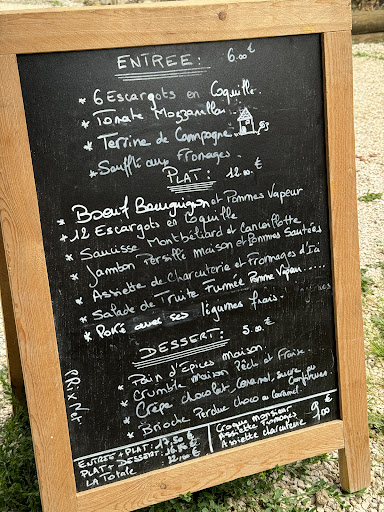 ENTREE : 6.00 €
* 6 Escargots en Coquille.
* Tomate Mozzarella
* Terrine de Campagne
* Soufflé aux fromages.
PLAT : 12.00 €
* Bœuf Bourguignon et Pommes Vapeur
* 12 Escargots en Coquille
* Saucisse Montbéliard et Cancoillotte
* Jambon Persillé Maison et Pommes Sautées
* Assiette de Charcuterie et Fromages d'Ici
* Salade de Truite Fumée Pomme Vapeur.....
* avec ses légumes frais.
DESSERT : 5.00 €
* Pain d'Epices Maison.
* Crumble maison Pêch et Fraise.
* Crêpe chocolat, Caramel, Sucre, ou Confitures
* Brioche Perdue choco ou Caramel.
ENTREE + PLAT : 17.50 €
PLAT + DESSERT : 16.50 €
LA Totale 22.00 €
Croque monsieur
Assiette fromages
Assiette charcuterie
9.00 €